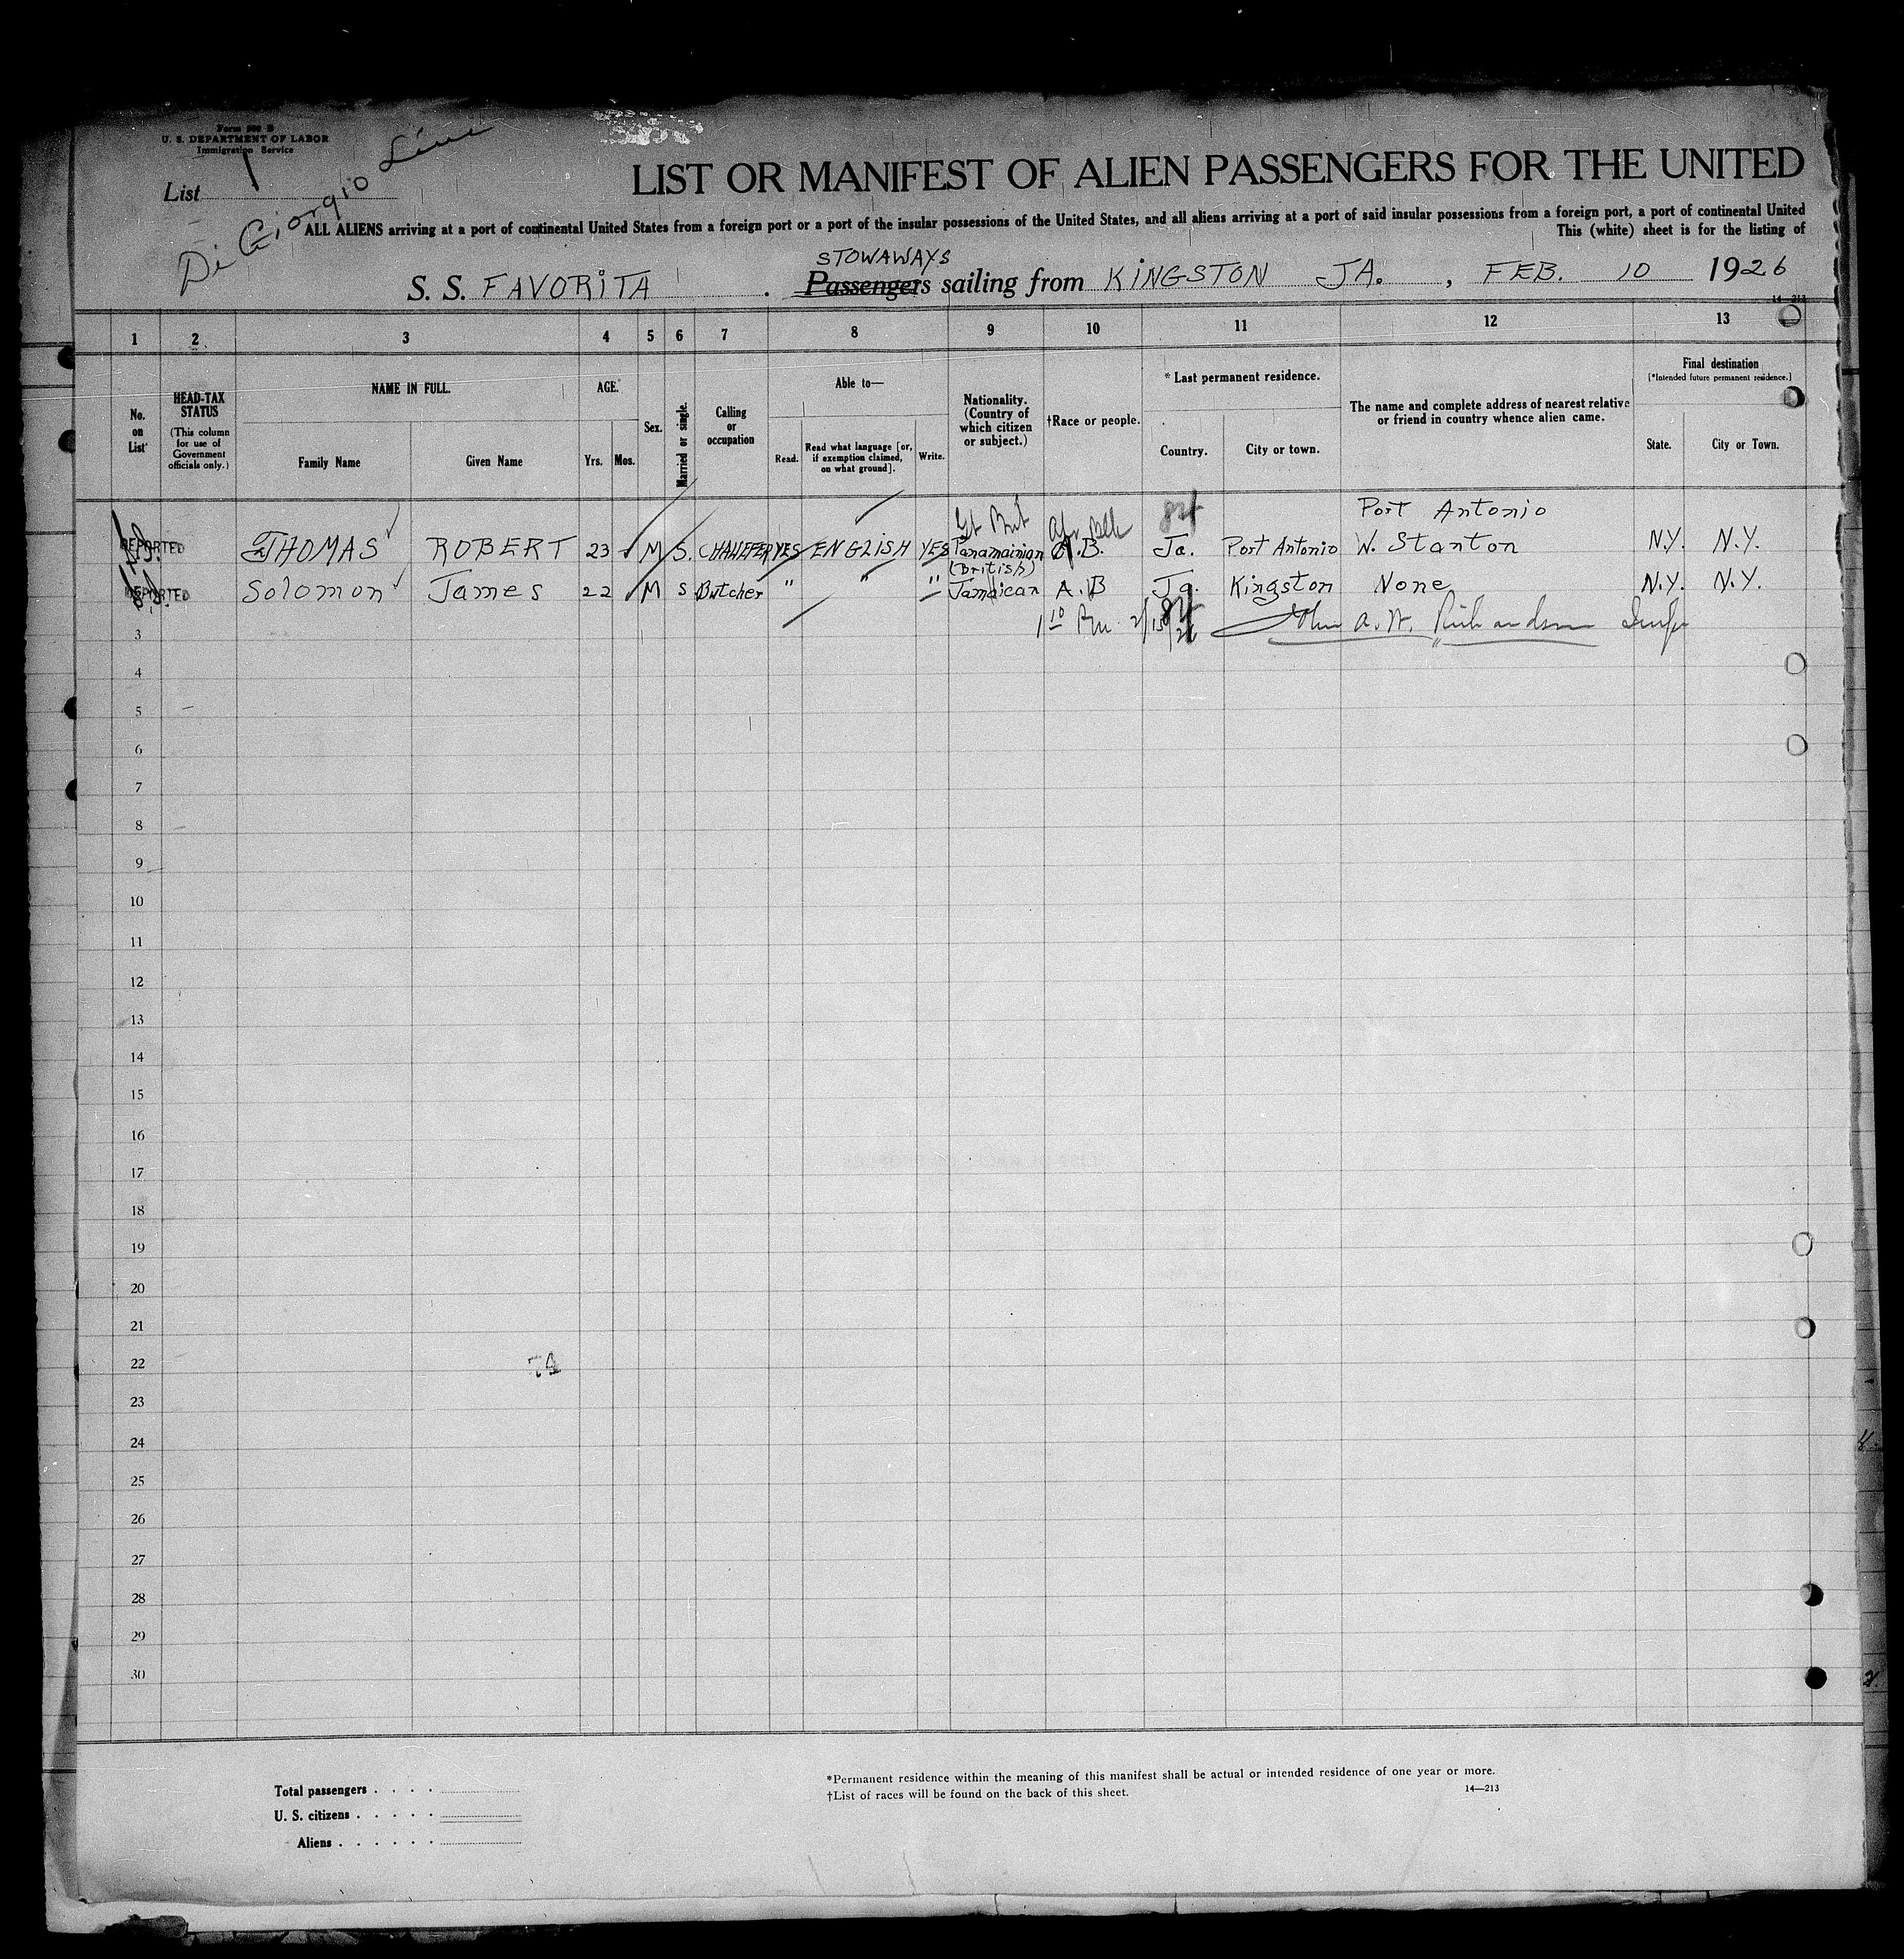 Form 500 B
U. S. DEPARTMENT OF LABOR
Immigration Service
List 1
Di Giorgio Line
LIST OR MANIFEST OF ALIEN PASSENGERS FOR THE UNITED
ALL ALIENS arriving at a port of continental United States from a foreign port or a port of the insular possessions of the United States, and all aliens arriving at a port of said insular possessions from a foreign port, a port of continental United
This (white) sheet is for the listing of
STOWAWAYS
S. S. FAVORITA . Passengers sailing from KINGSTON JA. , FEB. 10 1926
14—213
1 2 3 4 5 6 7 8 9 10 11 12 13
No. on List
HEAD-TAX STATUS (This column for use of Government officials only.)
NAME IN FULL.
Family Name Given Name
AGE.
Yrs. Mos.
Sex.
Married or single.
Calling or occupation
Able to—
Read. Read what language [or, if exemption claimed, on what ground]. Write.
Nationality. (Country of which citizen or subject.)
†Race or people.
* Last permanent residence.
Country. City or town.
The name and complete address of nearest relative or friend in country whence alien came.
Final destination
[*Intended future permanent residence.]
State. City or Town.
Gt Brit Afr Blk Port Antonio
DEPORTED THOMAS ROBERT 23 M S. CHAUFFER YES ENGLISH YES Panamainian A.B. Ja. Port Antonio W. Stanton N.Y. N.Y.
(British)
DEPORTED Solomon James 22 M S Butcher " " " Jamaican A.B Ja. Kingston None N.Y. N.Y.
3 2/15/26 John A. W. Richardson Insp
4
5
6
7
8
9
10
11
12
13
14
15
16
17
18
19
20
21
22
23
24
25
26
27
28
29
30
Total passengers . . . .
U. S. citizens . . . . .
Aliens . . . . . .
*Permanent residence within the meaning of this manifest shall be actual or intended residence of one year or more.
†List of races will be found on the back of this sheet.
14—213